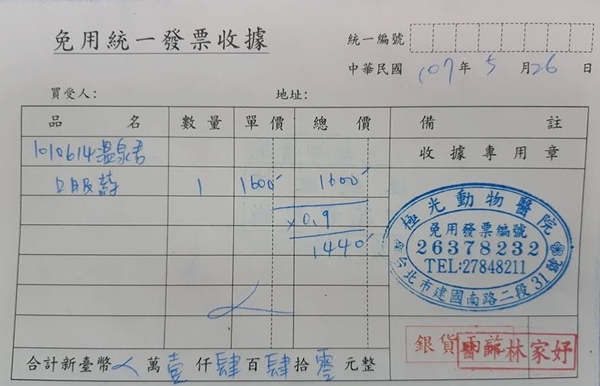 免用統一發票收據
統一編號
中華民國 107 年 5 月 26 日
買受人： 地址：
品 名 數量 單價 總 價 備 註
1010614溫泉吉 收據專用章
口服藥 1 1600 1600
x0.9
1440
極光動物醫院
免用發票編號
26378232
TEL:27848211
台北市建國南路二段31號
合計新臺幣 萬壹仟肆百肆拾零元整
銀貨 林家妤